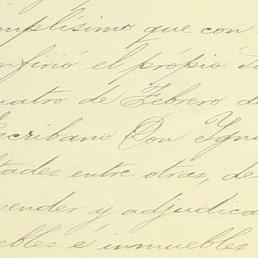 mplísimo que con
nfirió el própio
uatro de Febrero d
scribano Don Igna
ltades entre otras, de
vender y adjudica
ebles é inmuebles